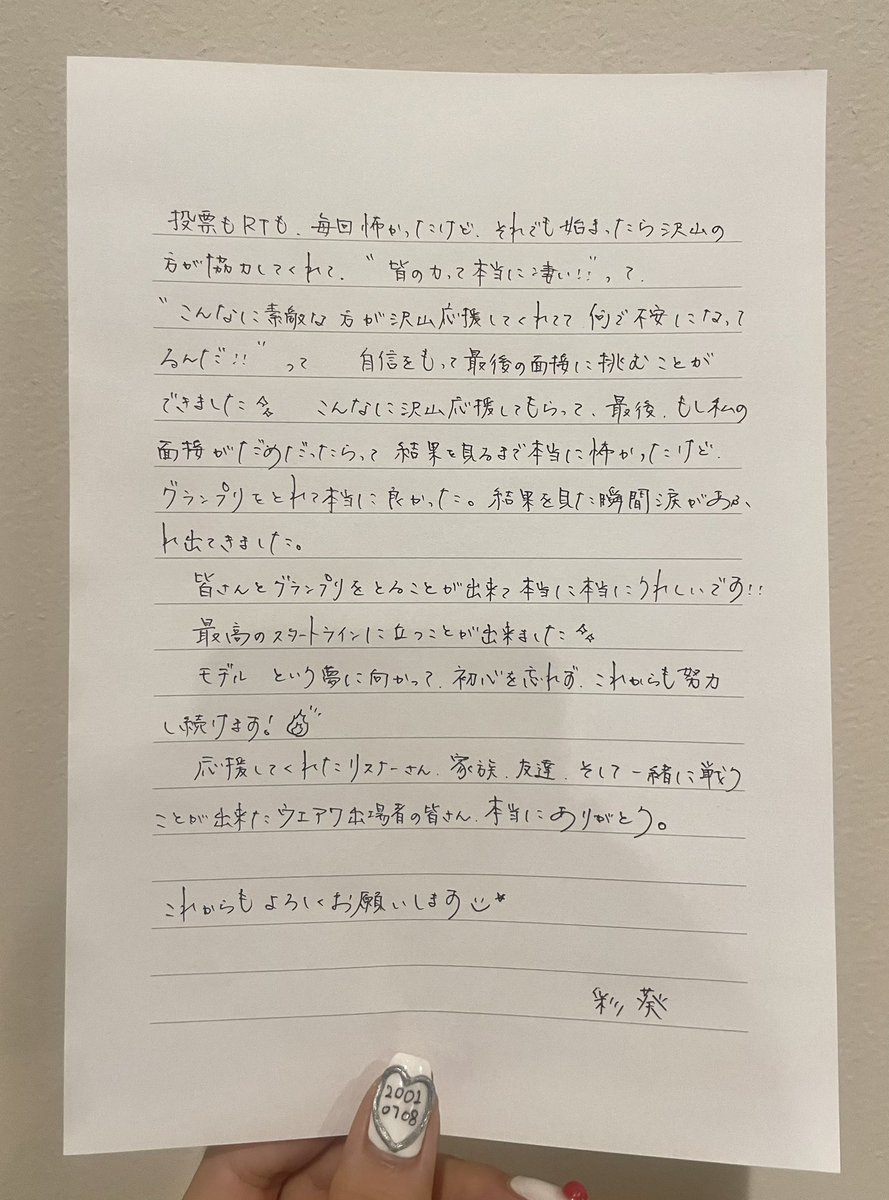 投票もRTも、毎回怖かったけど、それでも始まったら沢山の
方が協力してくれて、“皆の力って本当に凄い!!”って、
“こんなに素敵な方が沢山応援してくれてて何で不安になって
るんだ!!”って 自信をもって最後の面接に挑むことが
できました こんなに沢山応援してもらって、最後、もし私の
面接がだめだったらって結果を見るまで本当に怖かったけど、
グランプリをとれて本当に良かった。結果を見た瞬間涙があふ
れ出てきました。
皆さんとグランプリをとることが出来て本当に本当にうれしいです!!
最高のスタートラインに立つことが出来ました
モデル という夢に向かって、初心を忘れず、これからも努力
し続けます!
応援してくれたリスナーさん、家族、友達、そして一緒に戦う
ことが出来たウエアワ出場者の皆さん、本当にありがとう。
これからもよろしくお願いします
彩葵
2001
0708